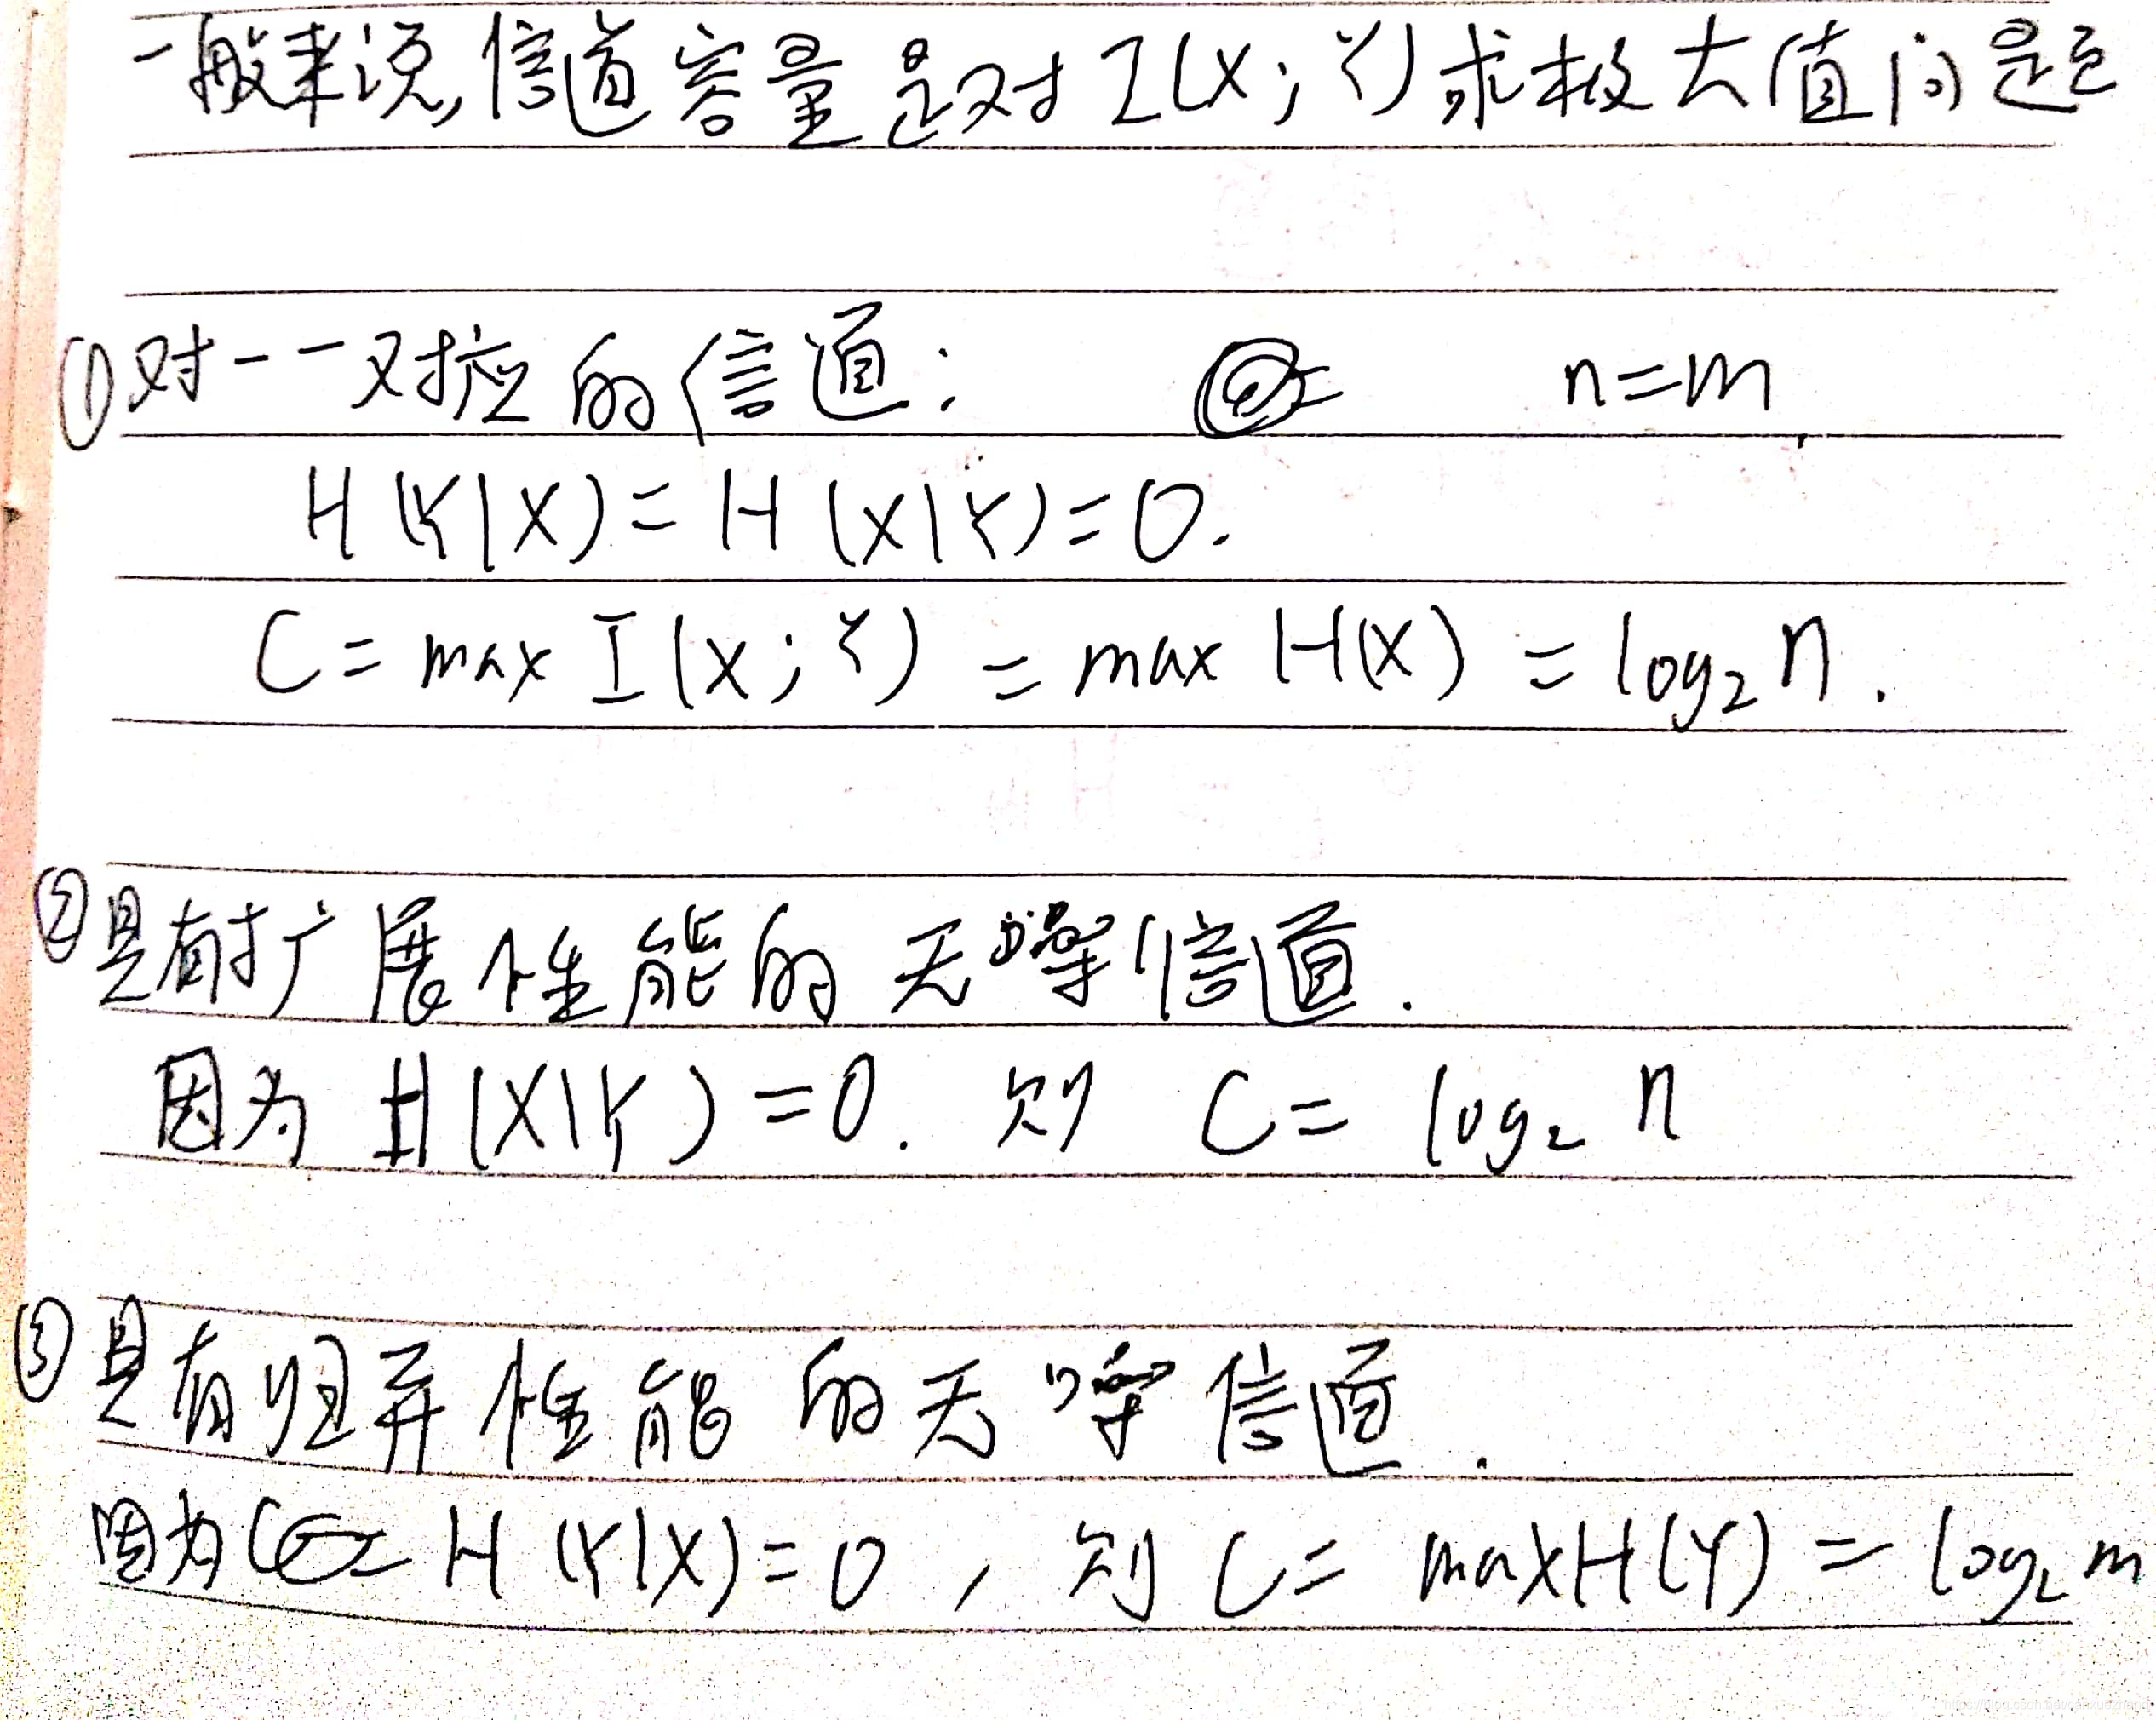 一般来说,信道容量是对I(X;Y)求极大值问题
①对一一对应的信道: n=m
H(Y|X)=H(X|Y)=0.
C=max I(X;Y)=max H(X)=log₂n.
②具有扩展性能的无噪信道.
因为 H(X|Y)=0. 则 C=log₂ n
③具有归并性能的无噪信道.
因为 H(Y|X)=0, 则 C=maxH(Y)=log₂m